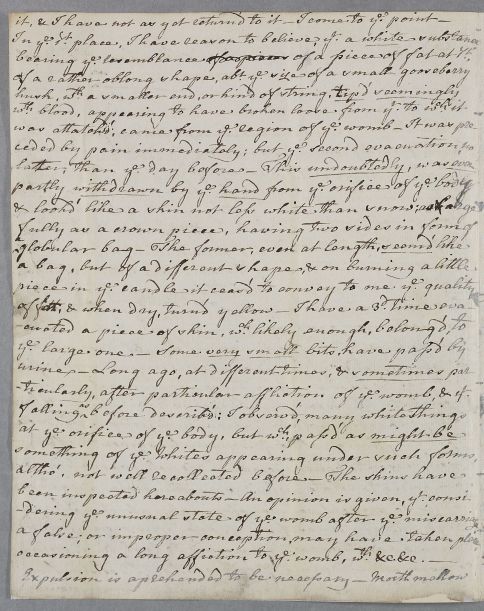 it, & I have not as yet return'd to it – I come to ye. point –
In ye. 1st. place, I have reason to believe, yt. a white substance
bearing ye. resemblance of a piece of fat at 1st.
of a rather oblong shape, abt. ye. size of a small gooseberry
husk, wth. a smaller end, or kind of string, tip'd seemingly
wth. blood, appearing to have broken loose from yt. to wch. it
was attatch'd, came from ye. region of ye. womb – It was pre
ceded by pain immediately; but ye. second evacuation,
latter, than ye. day before – This undoubtedly, was even
partly withdrawn by ye. hand from ye. orifice of ye. body
& look'd like a skin not less white than snow; as large
fully as a crown piece, having two sides in form of
globular bag – The former, even at length, seem'd like
a bag, but of a different shape, & on burning a little
piece in ye. candle it ceas'd to convey to me ye. quality
of fat, & when dry, turn'd yellow – I have a 3d. time eva
cuated a piece of skin, wch. likely enough, belong'd to
ye. large one – Some very small bits, have pass'd by
urine – Long ago, at different times, & sometimes par
ticularly, after particular affliction of ye. womb, & yt.
falling before describ'd; I observ'd, many white things
at ye. orifice of ye. body, but wch. pass'd as might be
something of ye. Whites appearing under such forms,
altho', not well recollected before – The skins have
been inspected hereabouts – An opinion is given, yt. consi
dering ye. unusual state of ye. womb after ye. miscarriage
a false; or improper conception, may have taken place
occasioning a long affliction to ye. womb, wth. &c &c. –
Expulsion is aprehended to be necessary – Marshmallow